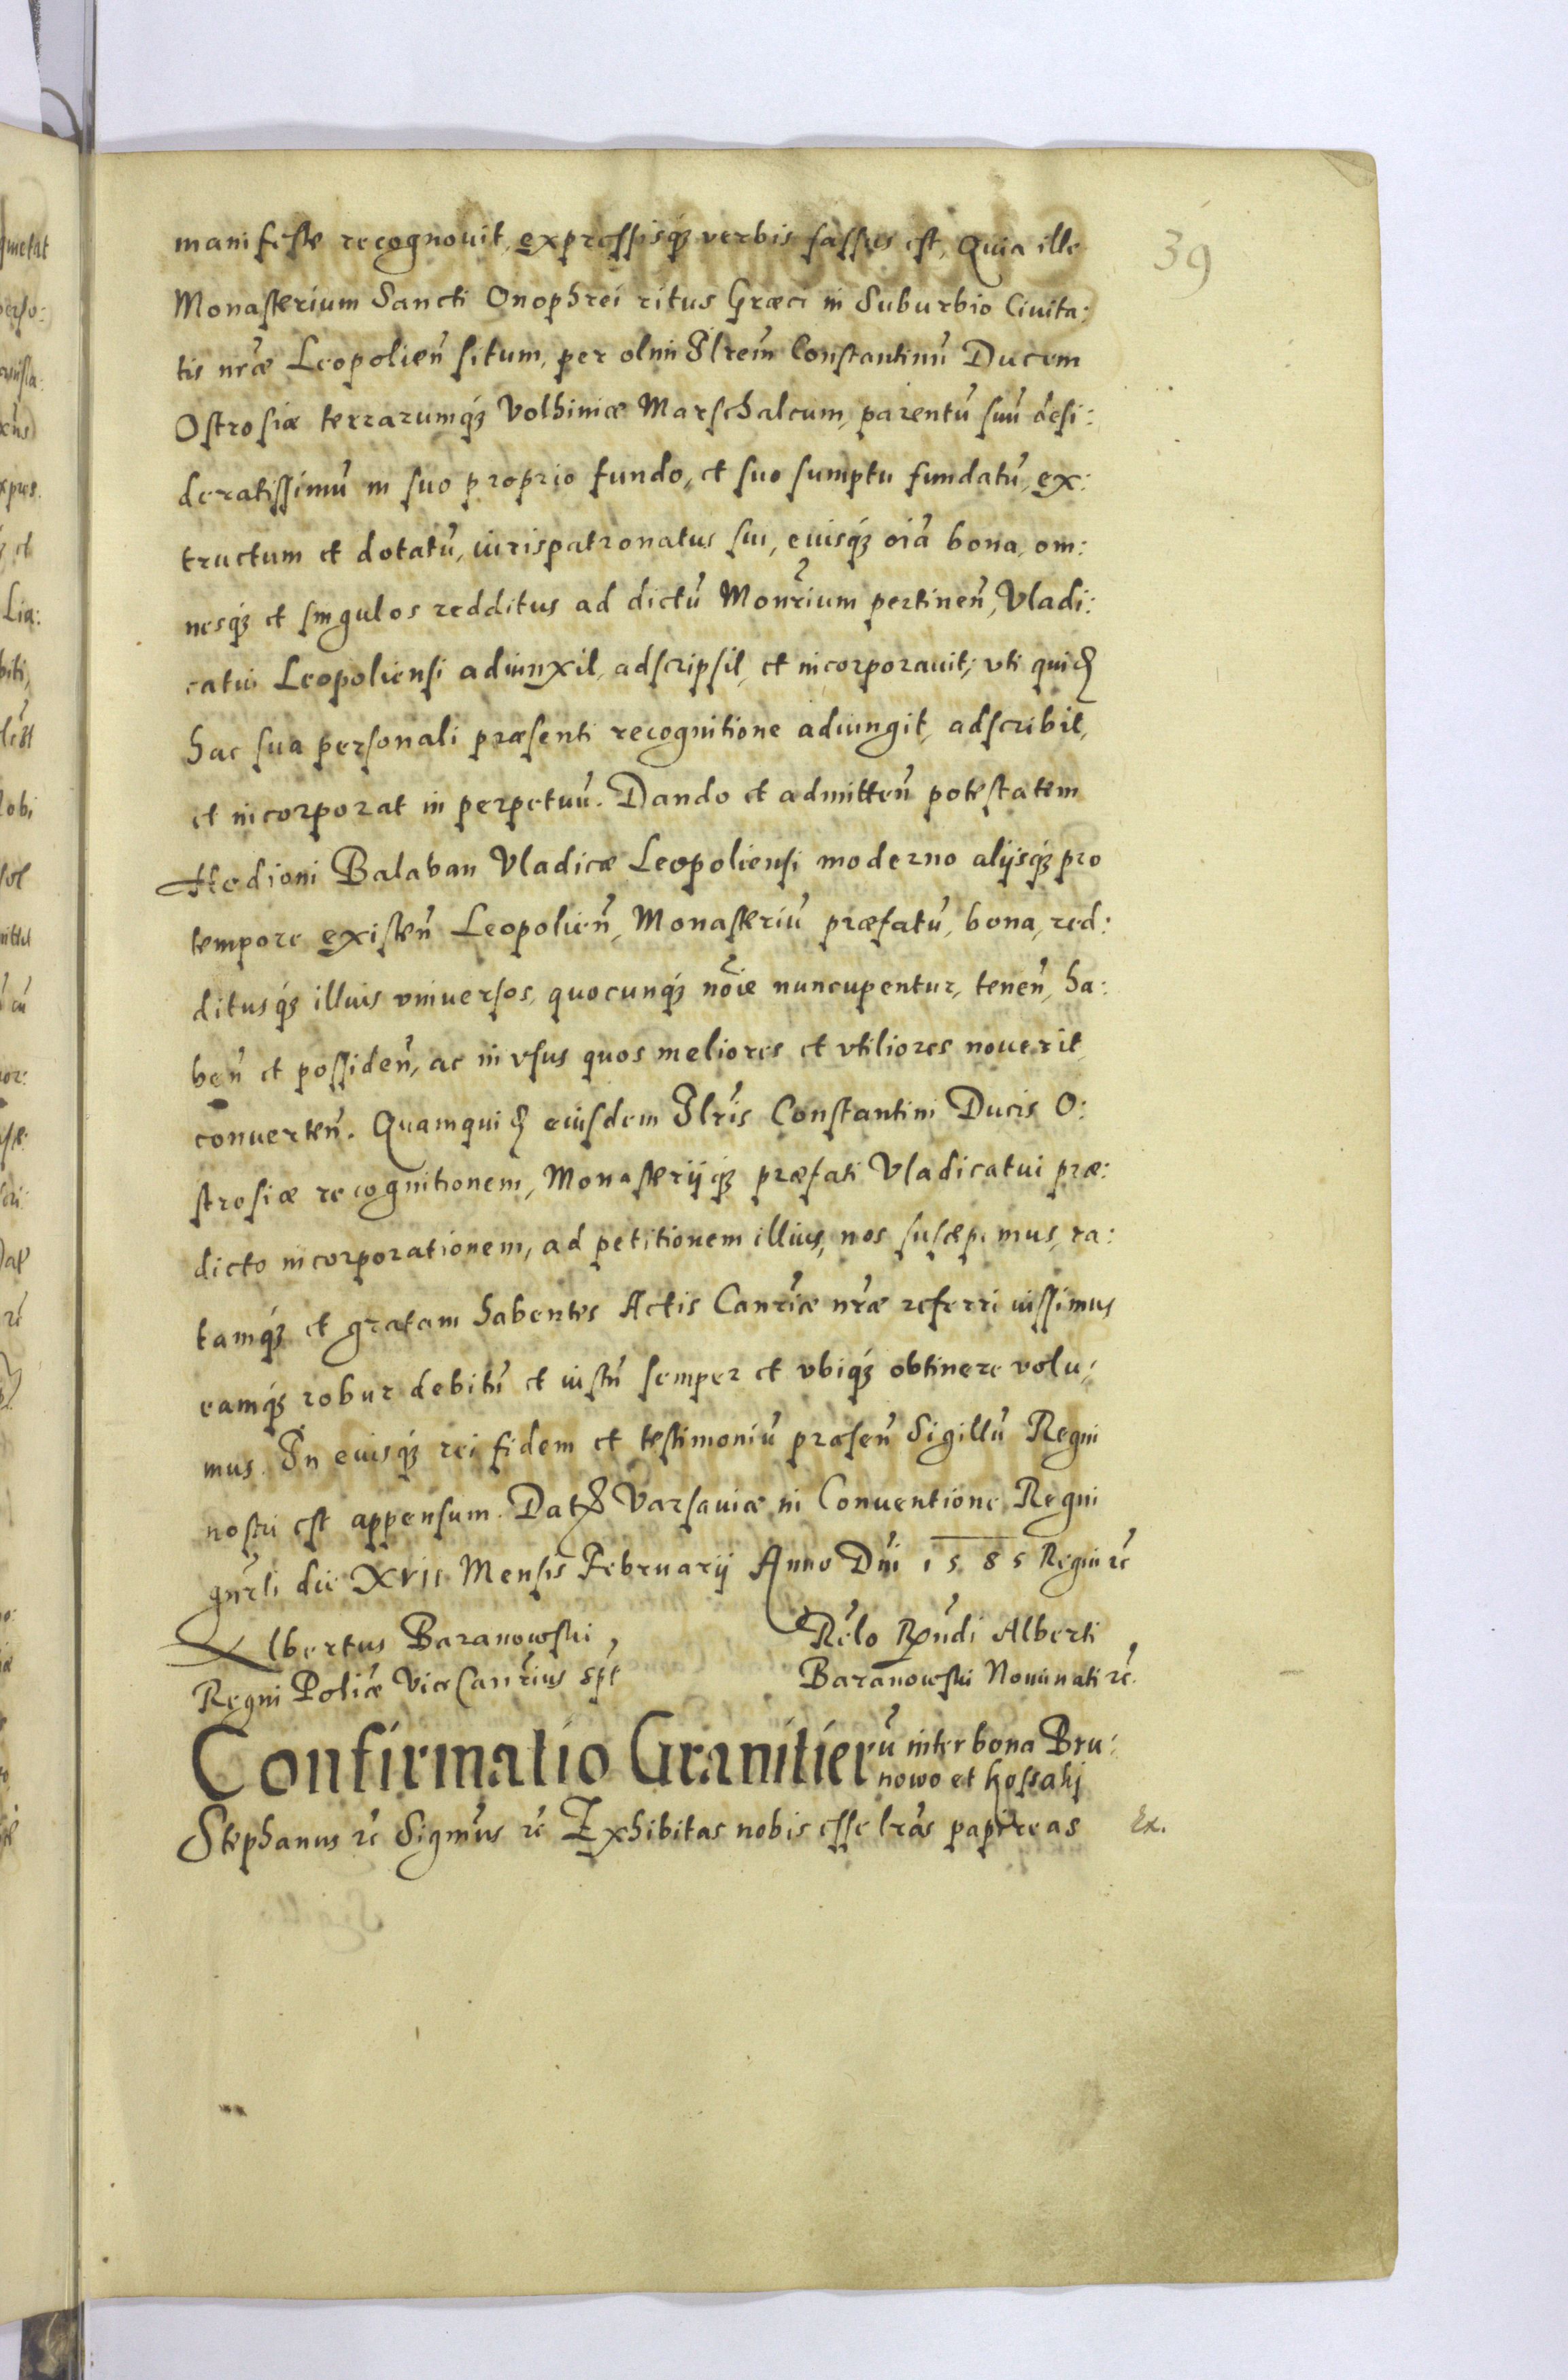 39
manifeste recognouit, expressisq́ꝫ verbis fassus est, Quia ille
Monasterium Sancti Onophrei ritus Græci in Suburbio Ciuita:
tis nr̃æ Leopolieñ situm, per olim Illrem̃ Constantinũ Ducem
Ostrosiæ terrarumq́ꝫ Volhiniæ Marschalcum, parentũ suũ desi:
deratissimũ in suo proprio fundo, et suo sumptu fundatũ, ex:
tructum et dotatũ, iurispatronatus sui, eiusq́ꝫ oĩa bona, om:
nesq́ꝫ et singulos redditus ad dictũ Monr̃ium pertineñ, Vladi:
catui Leopoliensi adiunxit, adscripsit, et incorporauit; vti quidẽ
hac sua personali præsenti recognitione adiungit, adscribit,
et incorporat in perpetuũ. Dando et admitteñ potestatem
Hedioni Balaban Vladicæ Leopoliensi moderno alijsq́ꝫ pro
tempore existeñ Leopolieñ, Monasteriũ præfatũ, bona, red:
ditusq́ꝫ illius vniuersos, quocunq́ꝫ nõie nuncupentur, teneñ, ha:
beñ et possideñ, ac in vsus quos meliores et vtiliores nouerit
conuerteñ. Quamquidẽ eiusdem Illrĩs Constantini Ducis O:
strosiæ recognitionem, Monasterijq́ꝫ præfati Vladicatui præ:
dicto incorporationem, ad petitionem illius, nos suscepimus, ra:
tamq́ꝫ et gratam habentes Actis Canr̃iæ nr̃æ referri iussimus
eamq́ꝫ robur debitũ et iustũ semper et vbiq́ꝫ obtinere volu:
mus. In cuiusq́ꝫ rei fidem et testimoniũ præseñ Sigillũ Regni
nostri est appensum. Datẽ Varsauiæ in Conuentione Regni
gnr̃li die XVII Mensis Februarij Anno Dñi 1585 Regni ꝛc̃
Albertus Baranowski
Regni Poliæ ViceCanr̃ius sp̃t
Relõ Rꝓñdi Alberti
Baranowski Nominati ꝛc̃.
Confirmatio Granitierũ inter bona Bru:
nowo et Kossaki
Stephanus ꝛc̃ Sigm̃us ꝛc̃ Exhibitas nobis esse lrãs papireas
Ex.